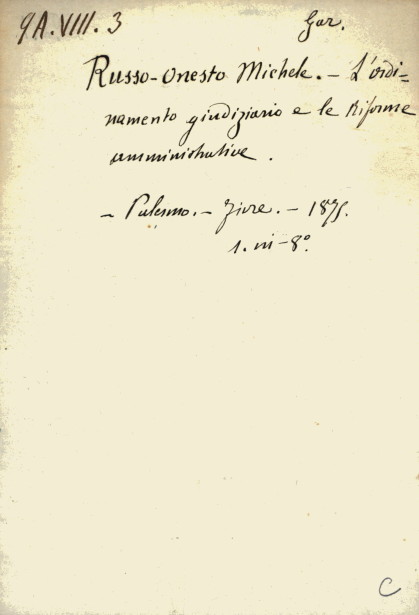 9A.VIII.3
Gar.
Russo-Onesto Michele. — L'ordi=
namento giudiziario e le Riforme
amministrative.
— Palermo. — — 1875.
1. in-8º.
C